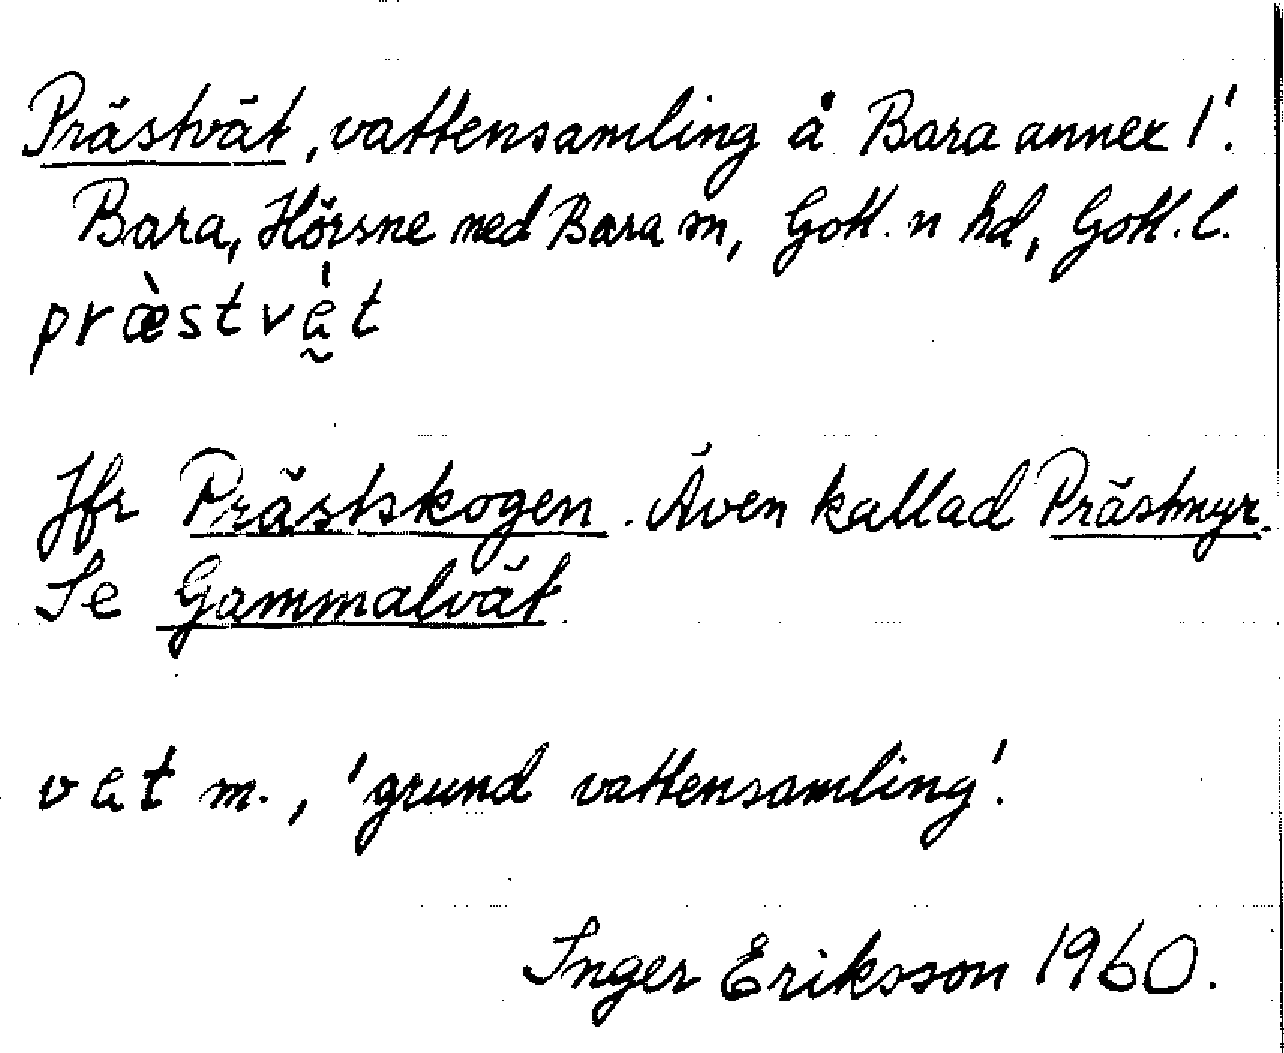 Prästvät, vattensamling å Bara annex 1'.
Bara, Hörsne med Bara sn, Gotl. n hd, Gotl. l.
præ̀stvà̰t
Jfr Prästskogen. Även kallad Prästmyr.
Se Gammalvät.
vat m., 'grund vattensamling'.
Inger Eriksson 1960.